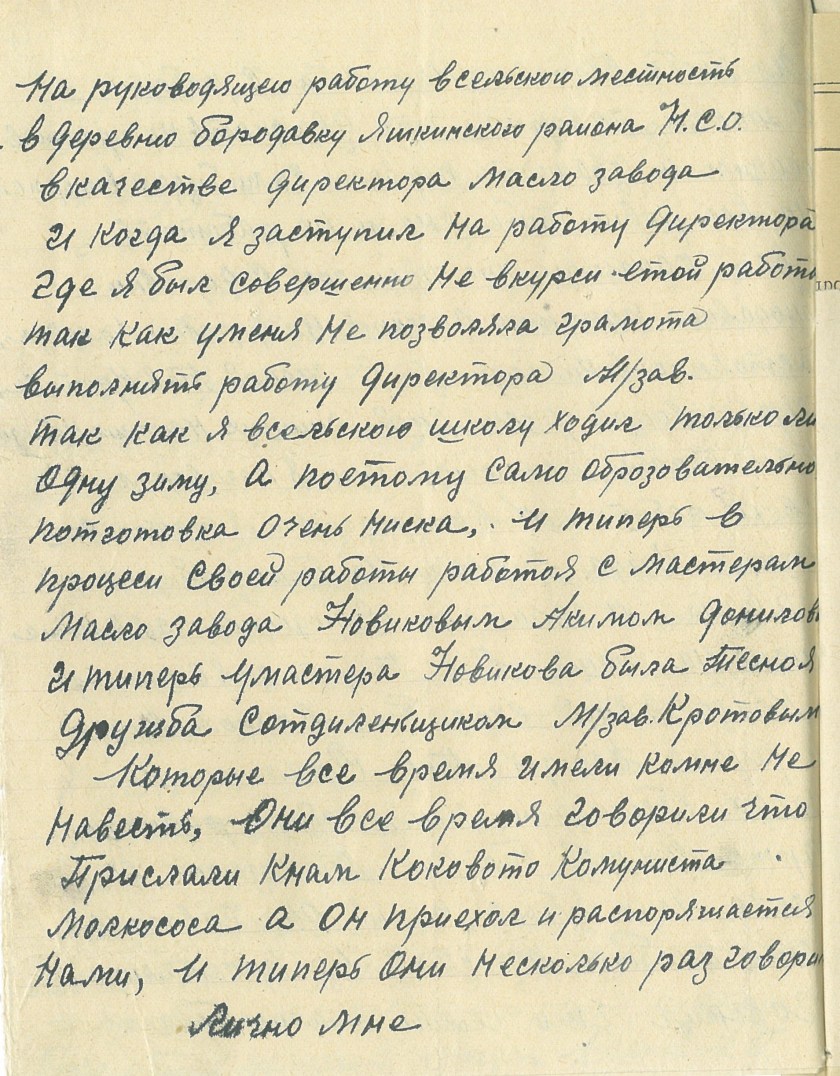 на руководящею работу всельскою местность
в деревню бородавку Яшкинского раиона Н.С.О.
вкачестве директора масло завода
и когда я заступил на работу директора
где я был совершенно не вкурси етой работы
так как уменя не позволяла грамота
выполнять работу директора М/зав.
так как я всельскою школу ходил только ли
одну зиму, а поетому само оброзовательно
потготовка очень ниска, и типерь в
процеси своей работы работоя с мастерам
масло завода Новиковым Акимом Донилов
и типерь умастера Новикова была тесноя
дружба сотдиленьщиком М/зав. Кротовым
Которые все время имели комне не
навесть, они все время говорили что
прислали кнам коковото комуниста
молкососа а он приехол и распоряжается
нами, и типерь они несколько раз говори
лично мне